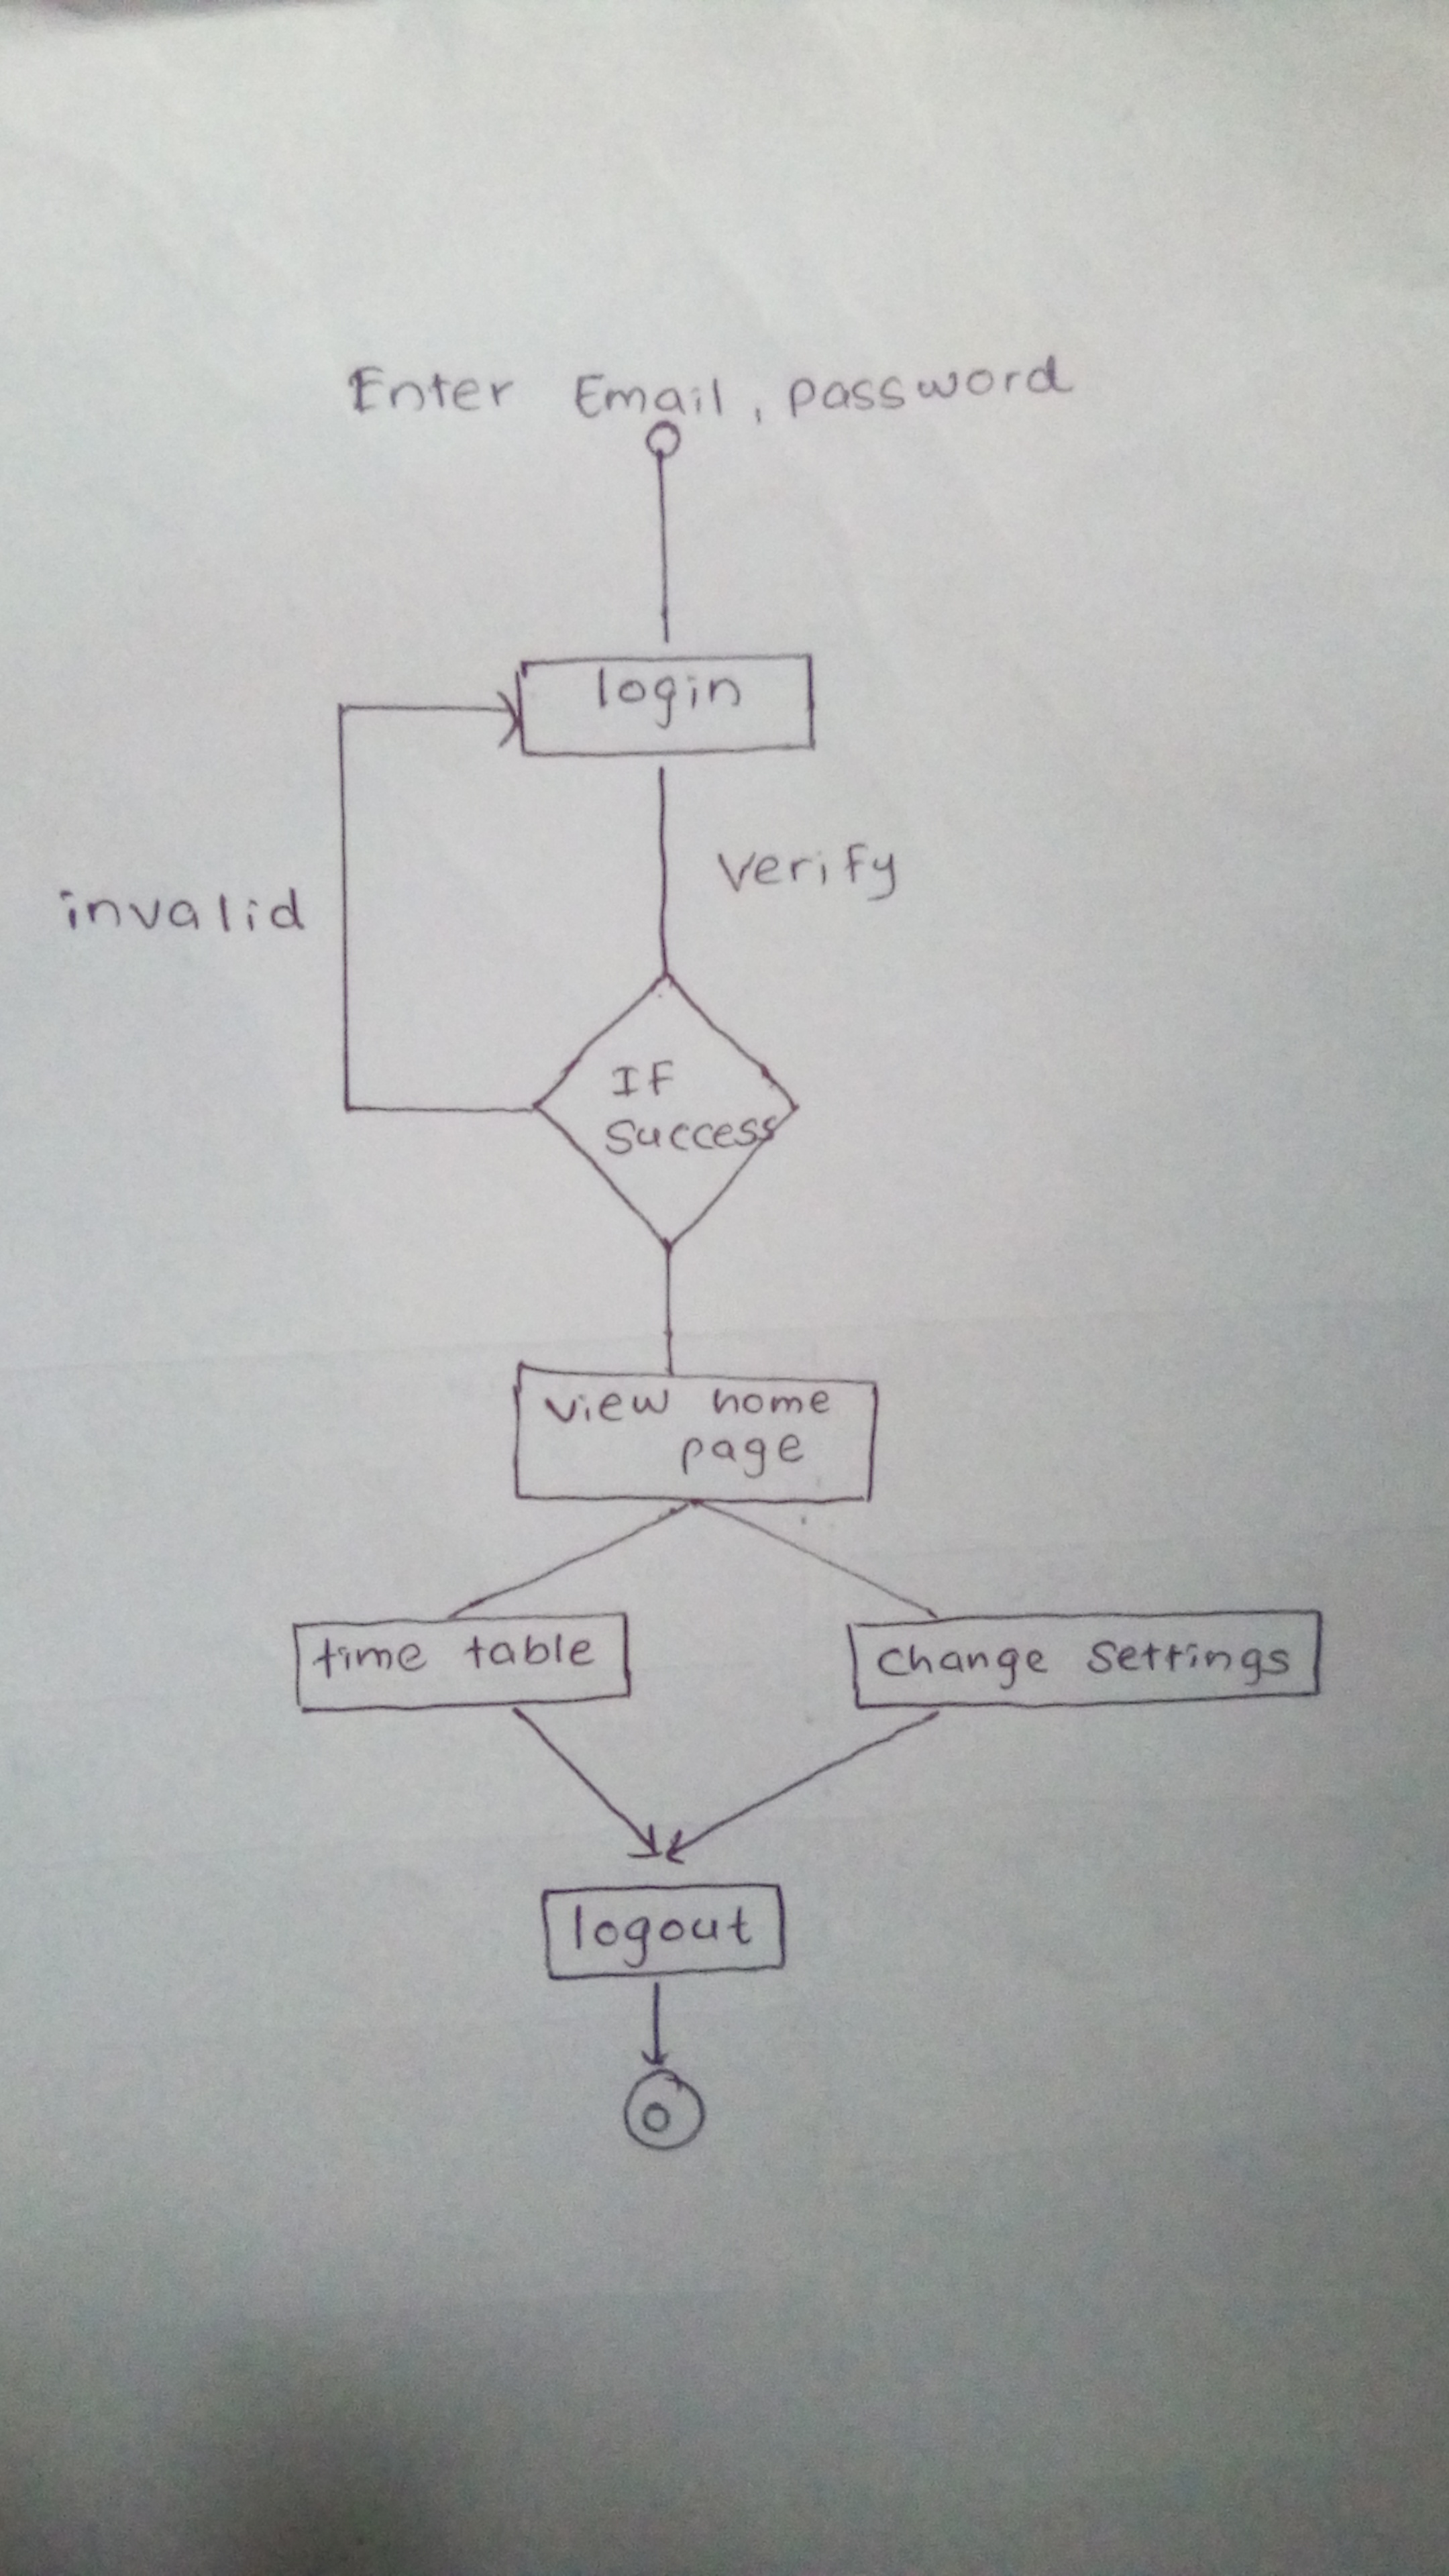 Enter Email, password
login
Verify
invalid
IF
Success
view home
page
time table
change settings
logout